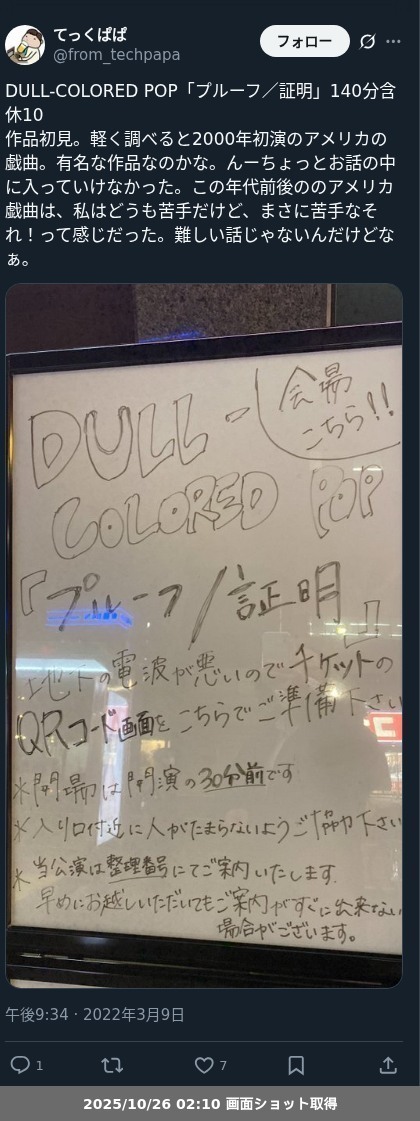 てっくぱぱ
@from_techpapa
フォロー
DULL-COLORED POP「プルーフ／証明」140分含
休10
作品初見。軽く調べると2000年初演のアメリカの
戯曲。有名な作品なのかな。んーちょっとお話の中
に入っていけなかった。この年代前後ののアメリカ
戯曲は、私はどうも苦手だけど、まさに苦手なそ
れ！って感じだった。難しい話じゃないんだけどな
ぁ。
会場
こちら!!
DULL-
COLORED POP
『プルーフ/証明』
地下の電波が悪いのでチケットの
QRコード画面をこちらでご準備下さい
※開場は開演の30分前です
※入り口付近に人がたまらないようご協力下さい
※当公演は整理番号にてご案内いたします.
早めにお越しいただいてもご案内がすぐに出来ない
場合がございます。
午後9:34 · 2022年3月9日
1
7
2025/10/26 02:10 画面ショット取得